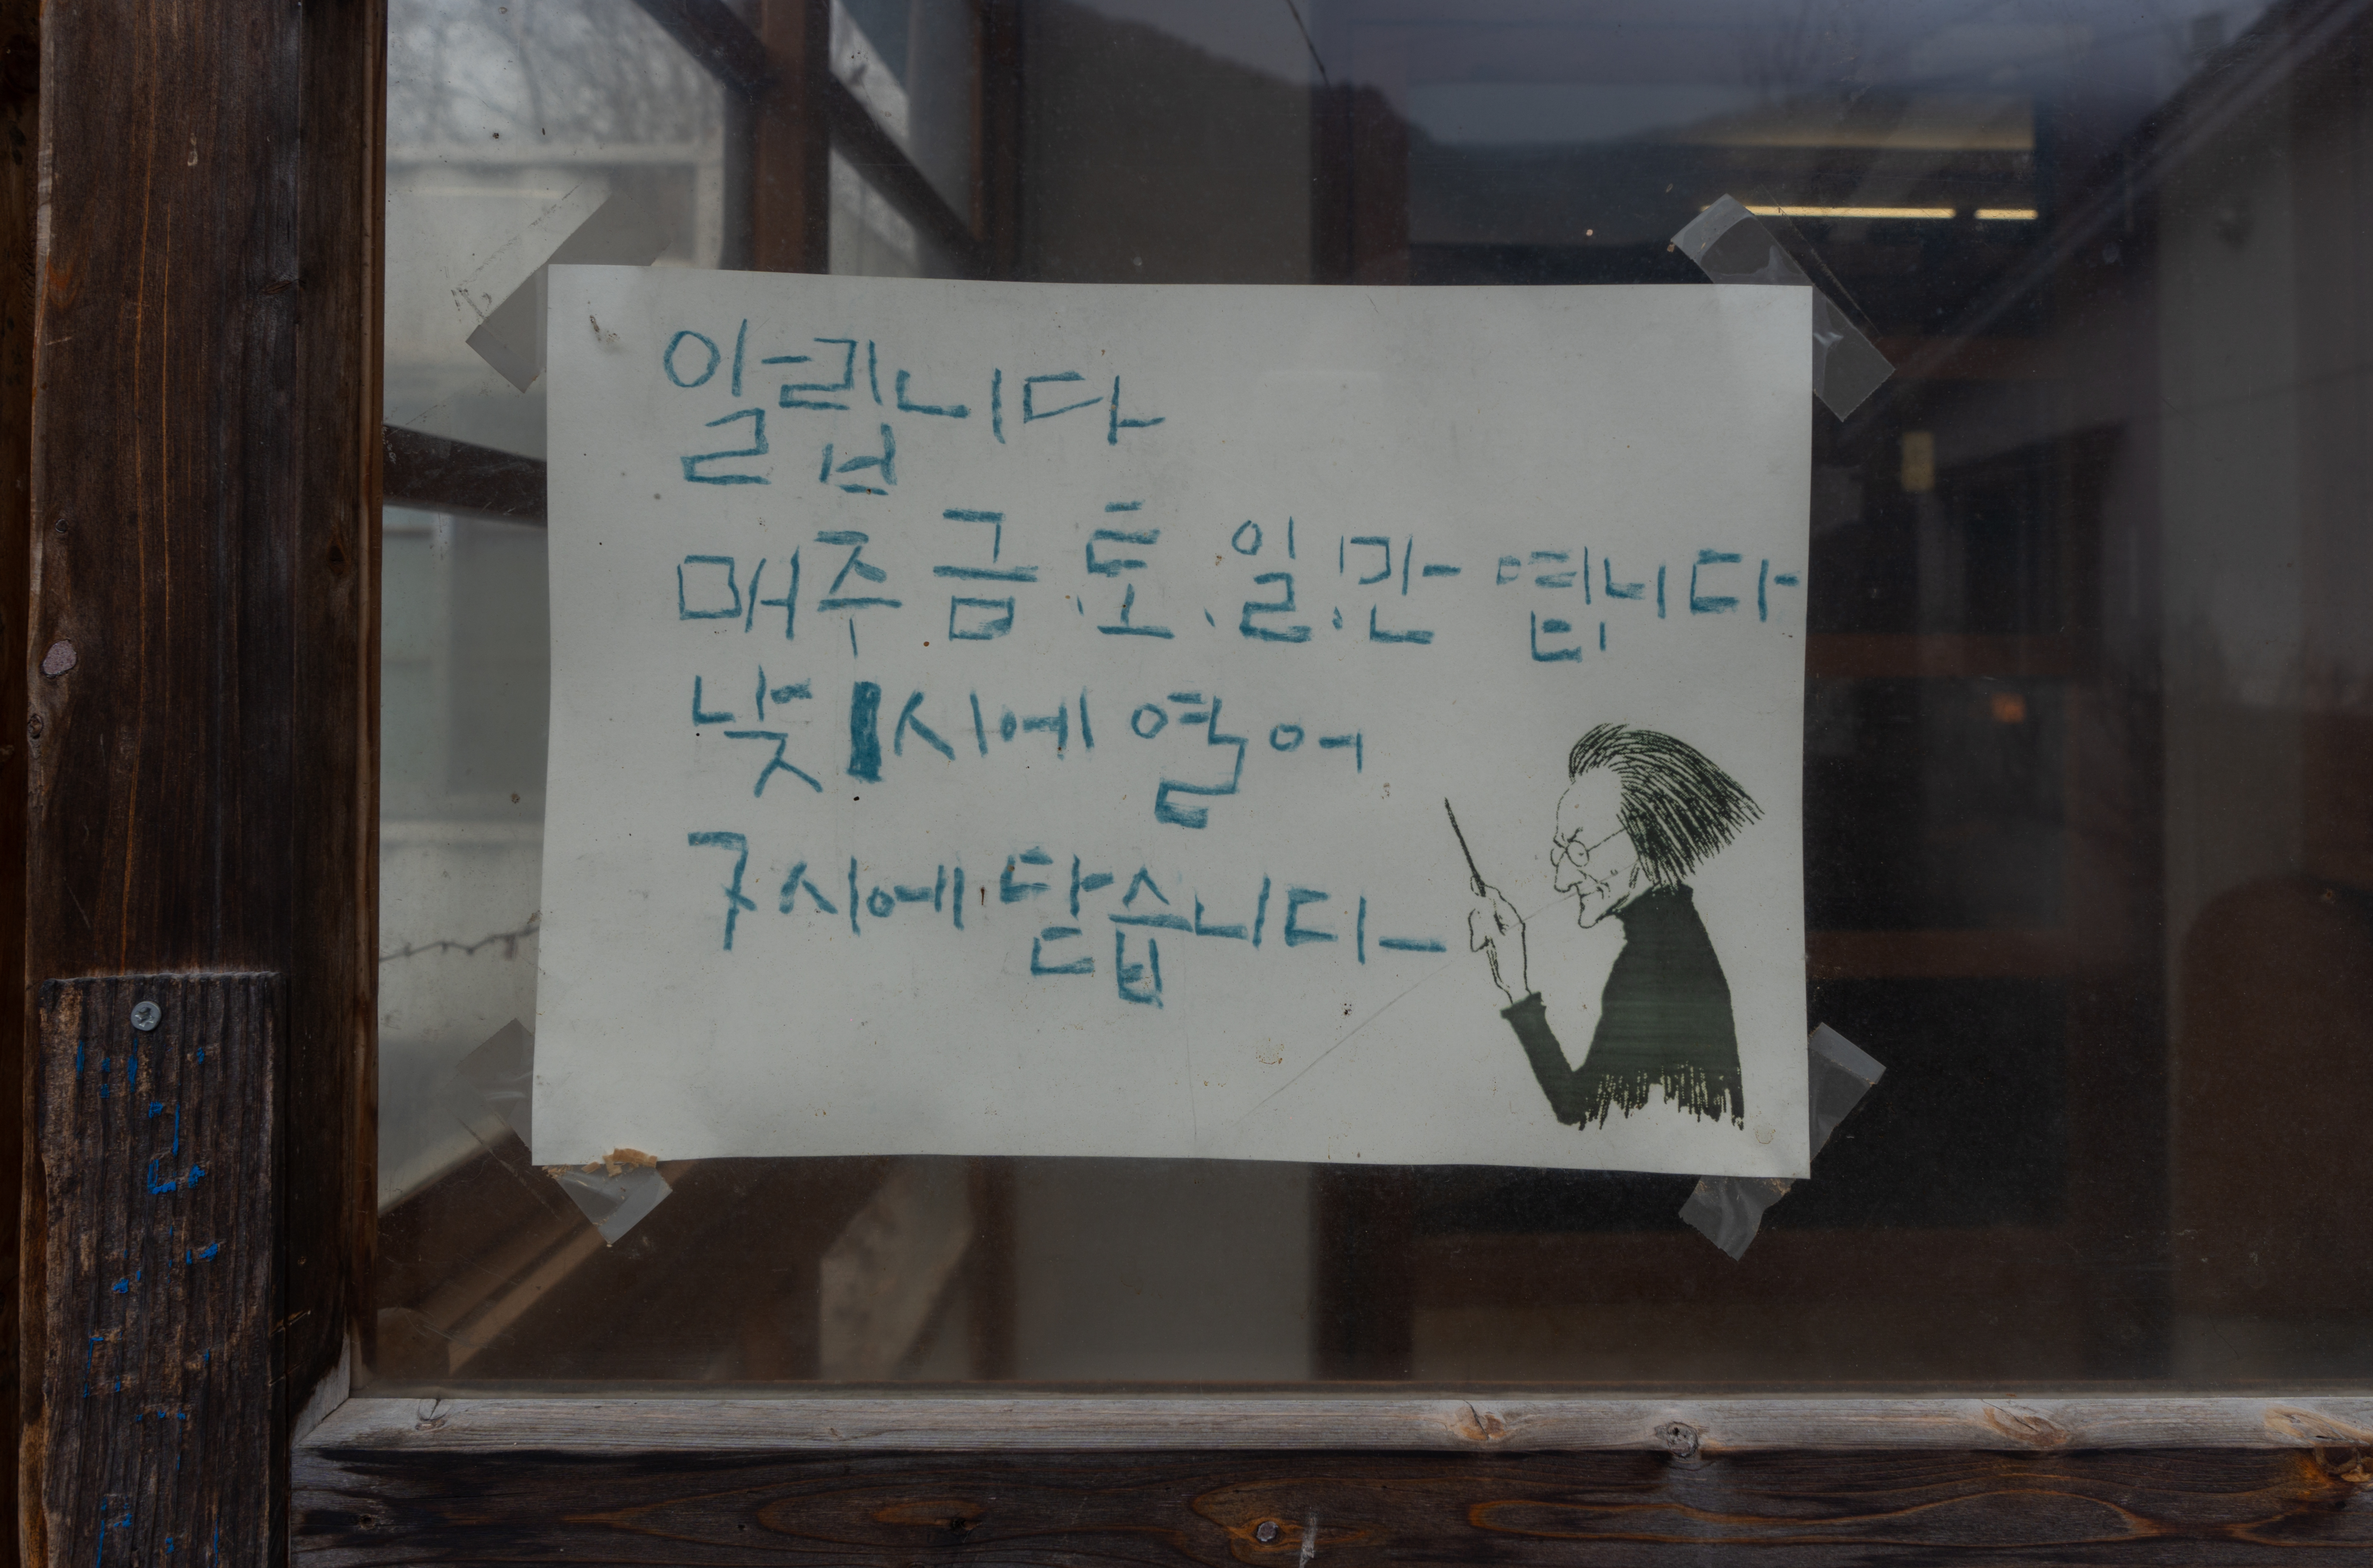 알립니다
매주 금.토.일.만 엽니다
낮 1시에 열어
7시에 닫습니다